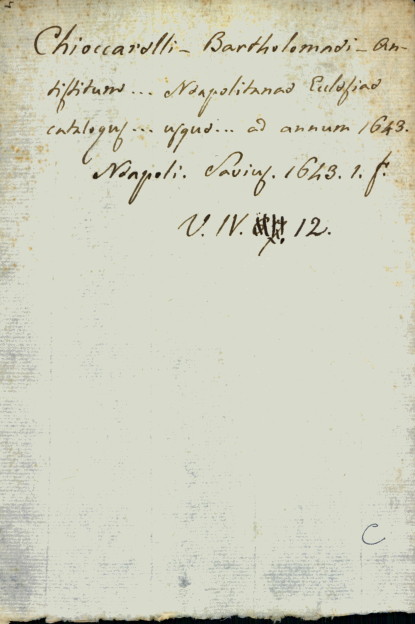 Chioccarelli - Bartholomaei - An-
tistitum ... Neapolitanae Ecclesiae
catalogus ... usque ... ad annum 1643.
Neapoli. Savius. 1643. 1. f.
V. IV. 12.
C